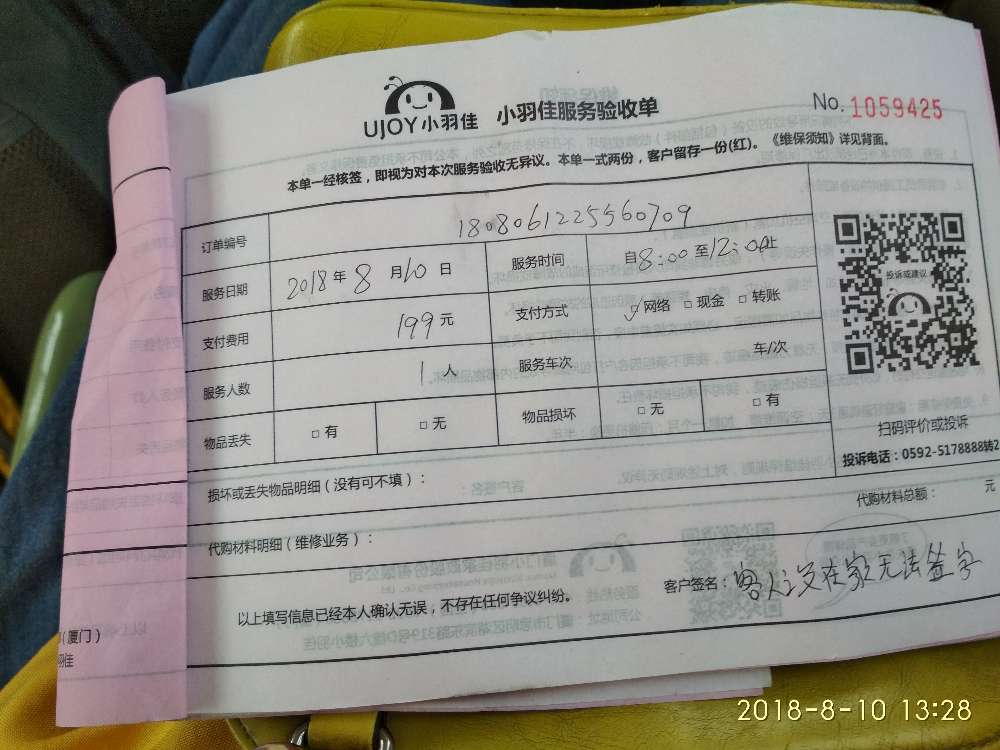 UJOY小羽佳 小羽佳服务验收单
No. 1059425
本单一经核签，即视为对本次服务验收无异议。本单一式两份，客户留存一份(红)。《维保须知》详见背面。
订单编号 1808061225560709
服务日期 2018年8月10日 服务时间 自8:00至12:00止
支付费用 199元 支付方式 ✓□网络 □现金 □转账
服务人数 1人 服务车次 车/次
物品丢失 □有 □无 物品损坏 □无 □有
投诉或建议
扫码评价或投诉
投诉电话：0592-5178888转2
损坏或丢失物品明细（没有可不填）：
代购材料明细（维修业务）： 代购材料总额： 元
以上填写信息已经本人确认无误，不存在任何争议纠纷。
客户签名：客人没在家无法签字
(厦门)
羽佳
2018-8-10 13:28